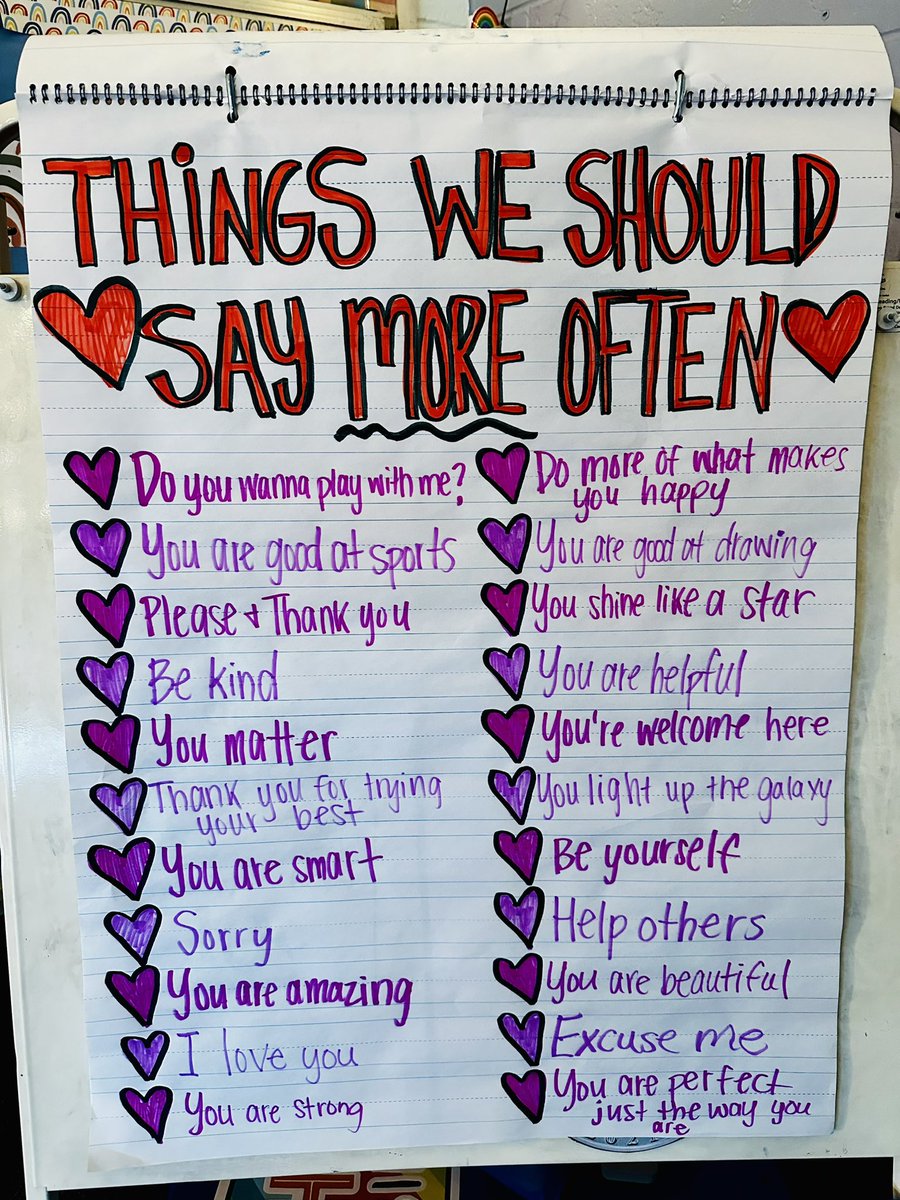 THINGS WE SHOULD
SAY MORE OFTEN
Do you wanna play with me?
You are good at sports
Please + Thank you
Be kind
You matter
Thank you for trying
your best
You are smart
Sorry
You are amazing
I love you
You are strong
Do more of what makes
you happy
You are good at drawing
You shine like a star
You are helpful
You're welcome here
You light up the galaxy
Be yourself
Help others
You are beautiful
Excuse me
You are perfect
just the way you
are